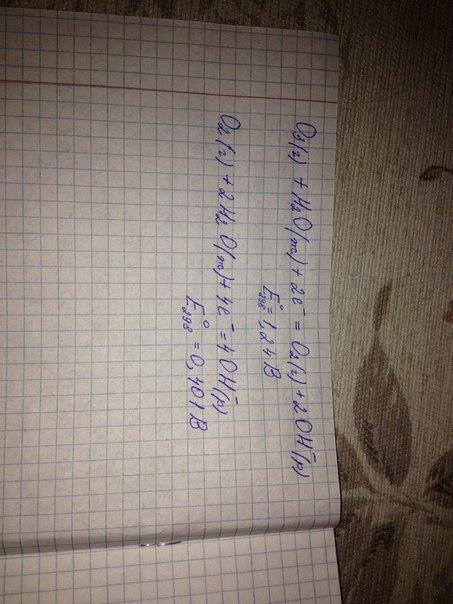 O₃(г) + H₂O(ж) + 2e⁻ = O₂(г) + 2OH⁻(р)
E°₂₉₈ = 1,24 В
O₂(г) + 2H₂O(ж) + 4e⁻ = 4OH⁻(р)
E°₂₉₈ = 0,401 В